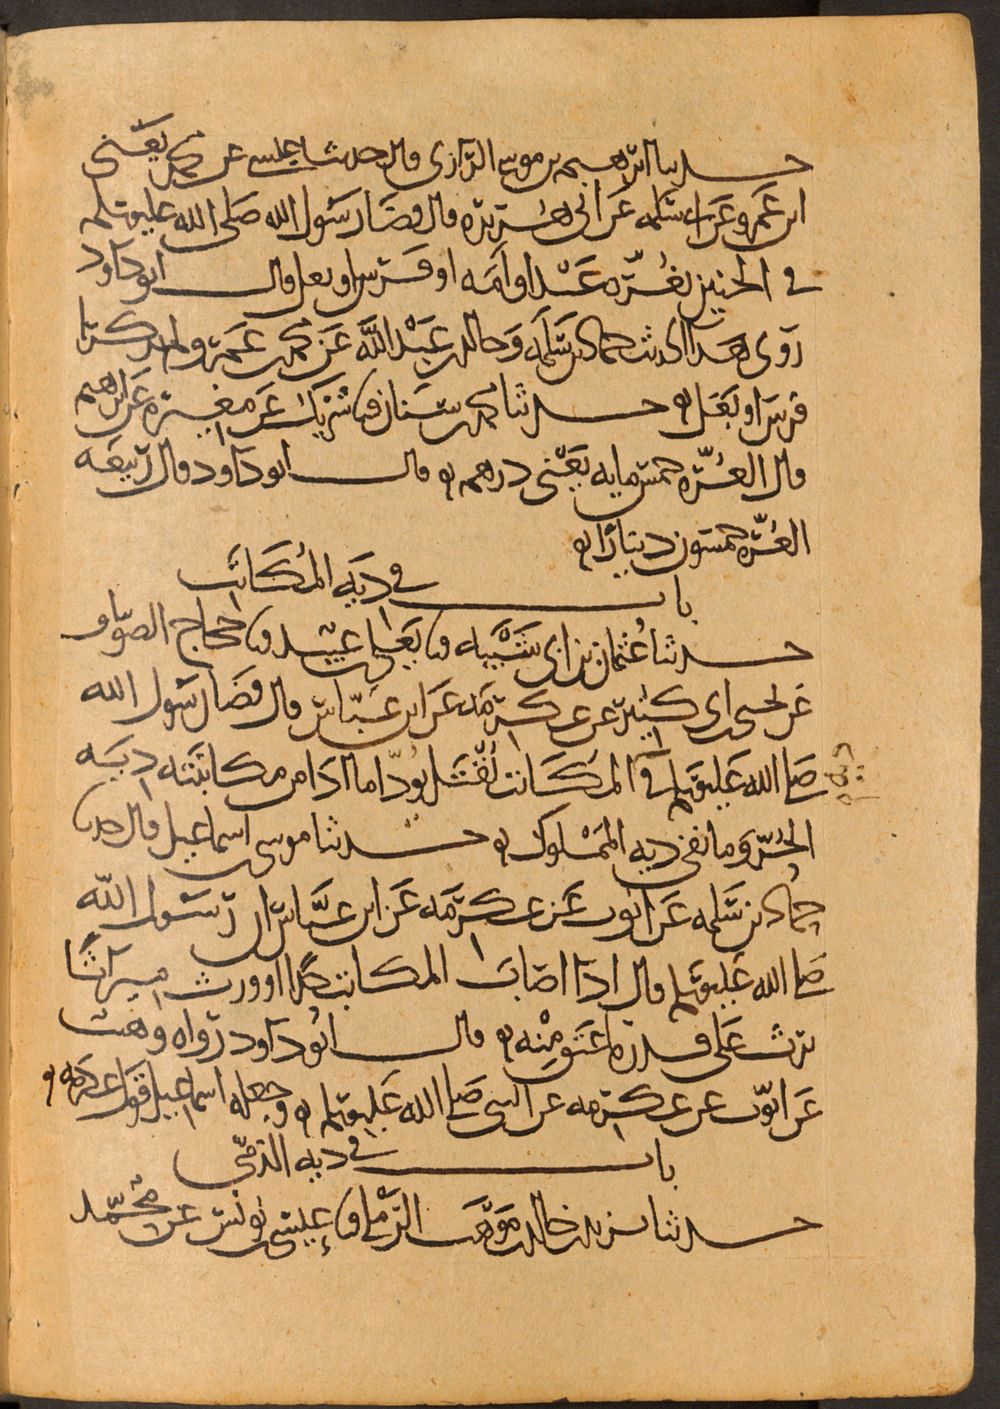 حدثنا ابرهيم بن موسى الرازي قال حدثنا عيسى عن محمد يعني
ابن عمرو عن ابي سلمه عن ابي هريره قال قضا رسول الله صلى الله عليه وسلم
في الجنين بغره عبد او امه او فرس او بغل قال ابو داود
روى هذا الحديث حماد بن سلمه وخالد بن عبد الله عن محمد بن عمرو ولم يذكرا
فرس او بغل ه حدثنا محمد بن سنان قال شريك عن مغيره عن ابرهيم
قال الغره خمس مايه يعني درهم ه قال ابو داود قال ربيعه
الغره خمسون دينارا ه
باب في ديه المكاتب
حدثنا عثمان بن ابي شيبه قال يعلى بن عبيد قال حجاج الصواف
عن يحيى بن ابي كثير عن عكرمه عن ابن عباس قال قضا رسول الله
صلى الله عليه وسلم في المكاتب يقتل يودا ما ادا من مكاتبته ديه
الحر وما بقي ديه المملوك ه حدثنا موسى بن اسماعيل قال حدثنا
حماد بن سلمه عن ايوب عن عكرمه عن ابن عباس ان رسول الله
صلى الله عليه وسلم قال اذا اصاب المكاتب حدا او ورث ميراثا
يرث على قدر ما عتق منه ه قال ابو داود رواه وهيب
عن ايوب عن عكرمه عن النبي صلى الله عليه وسلم ه وجعله اسماعيل قول عكرمه ه
باب في ديه الذمي
حدثنا يزيد بن خالد بن موهب الرملي قال عيسى بن يونس عن محمد